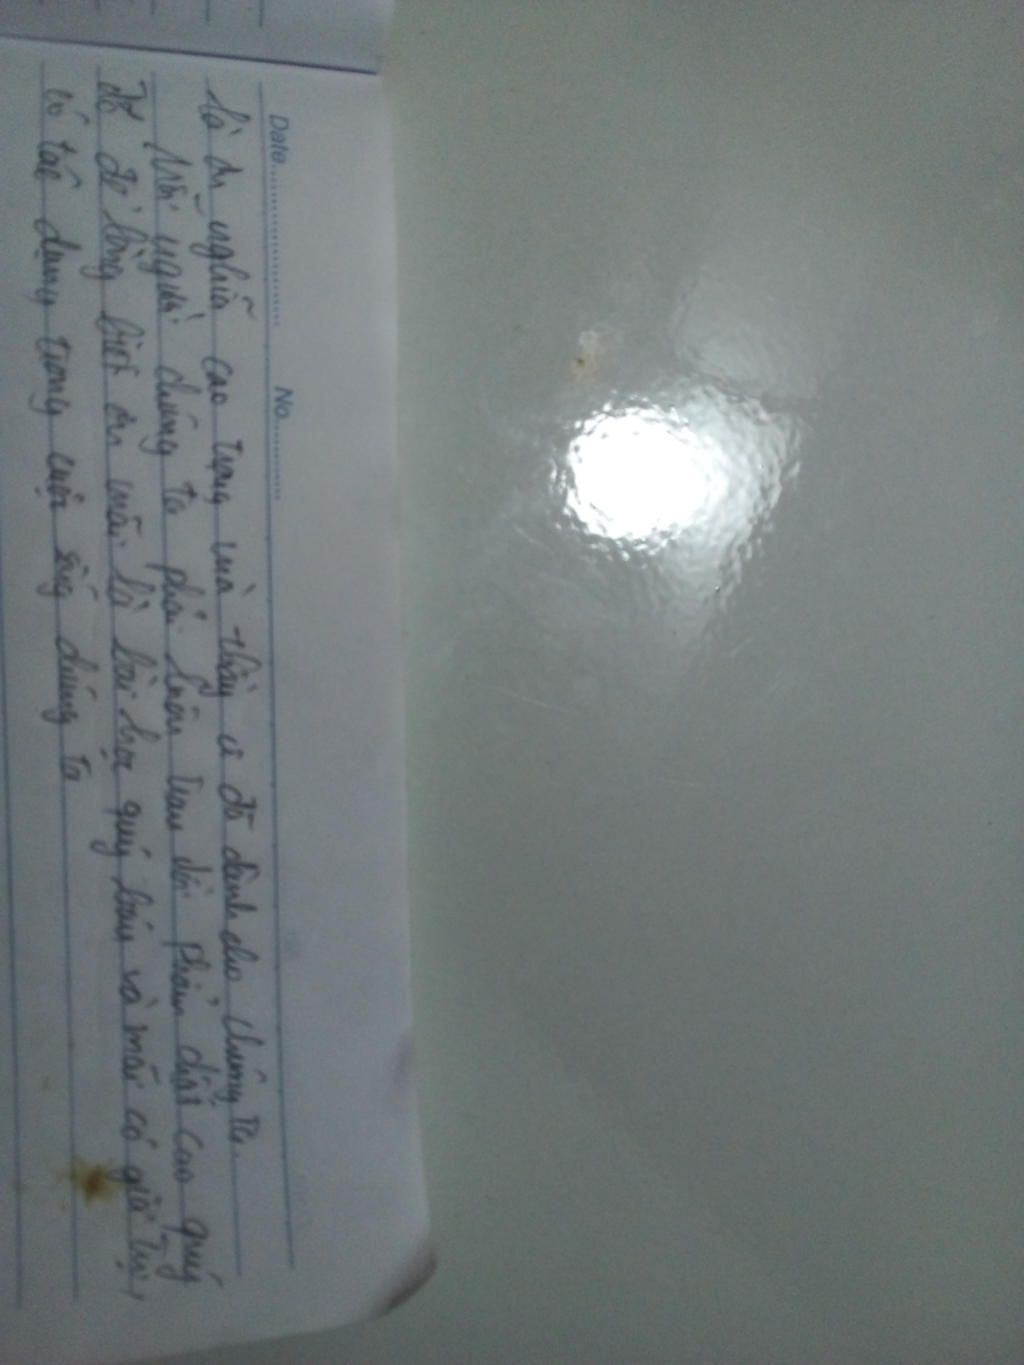 Date.............................. No....................
là ơn nghĩa cao trọng mà thầy cô đã dành cho chúng ta.
Mỗi người chúng ta phải luôn trau dồi phẩm chất cao quý
đó để lòng biết ơn mãi là bài học quý báu và mãi có giá trị,
có tác dụng trong cuộc sống chúng ta